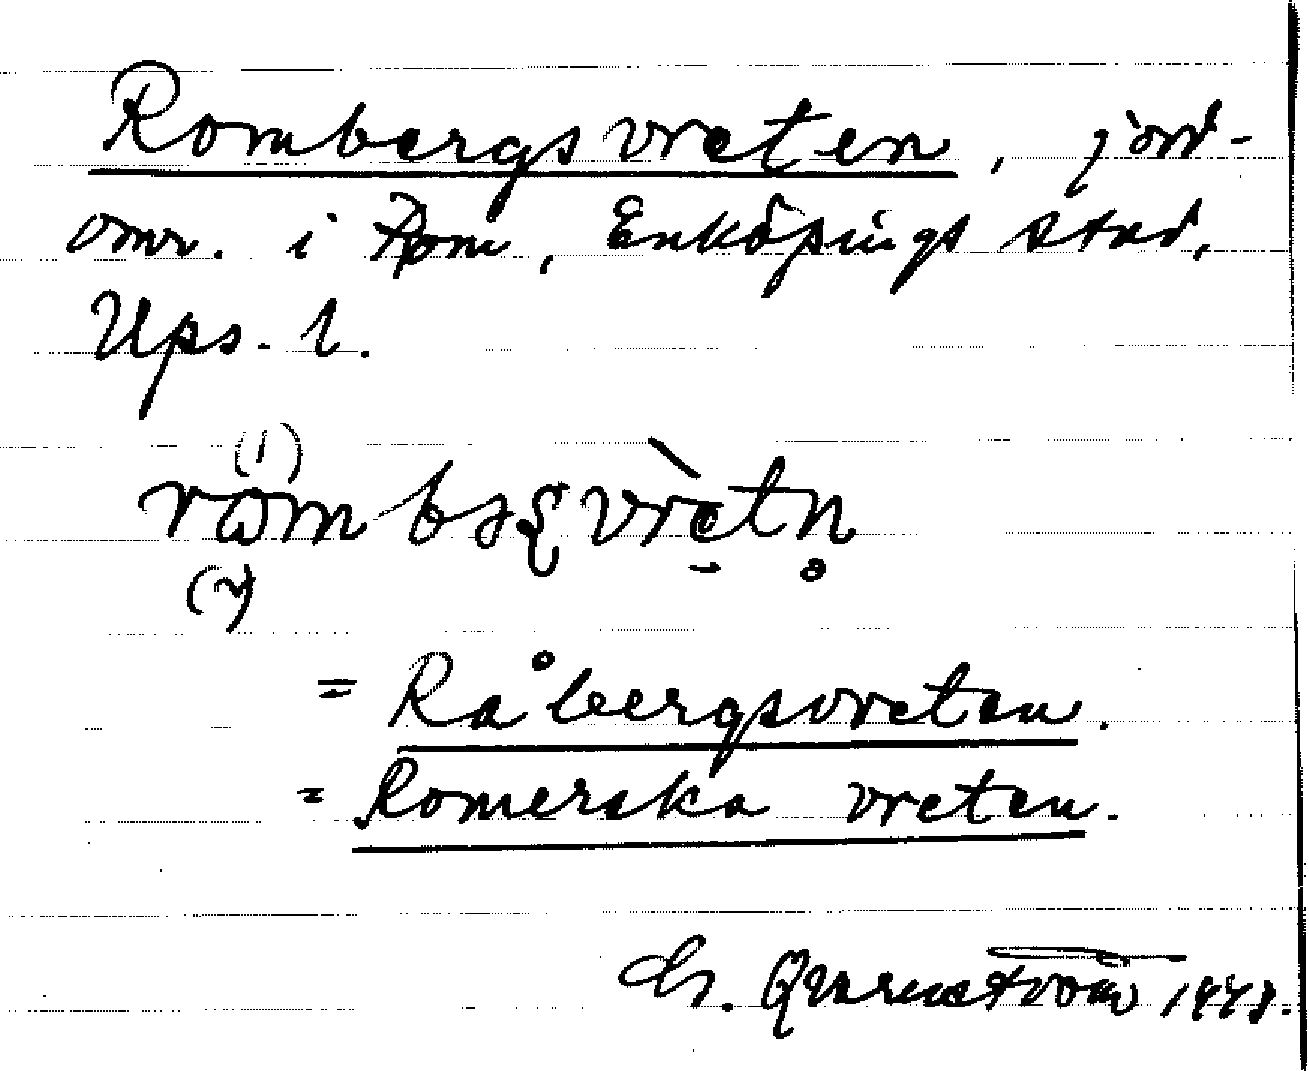 Rombergsvreten, jord-
omr. i Rom, Enköpings stad,
Ups. l.
= Råbergsvreten.
= Romerska vreten.
G. Qvarnström